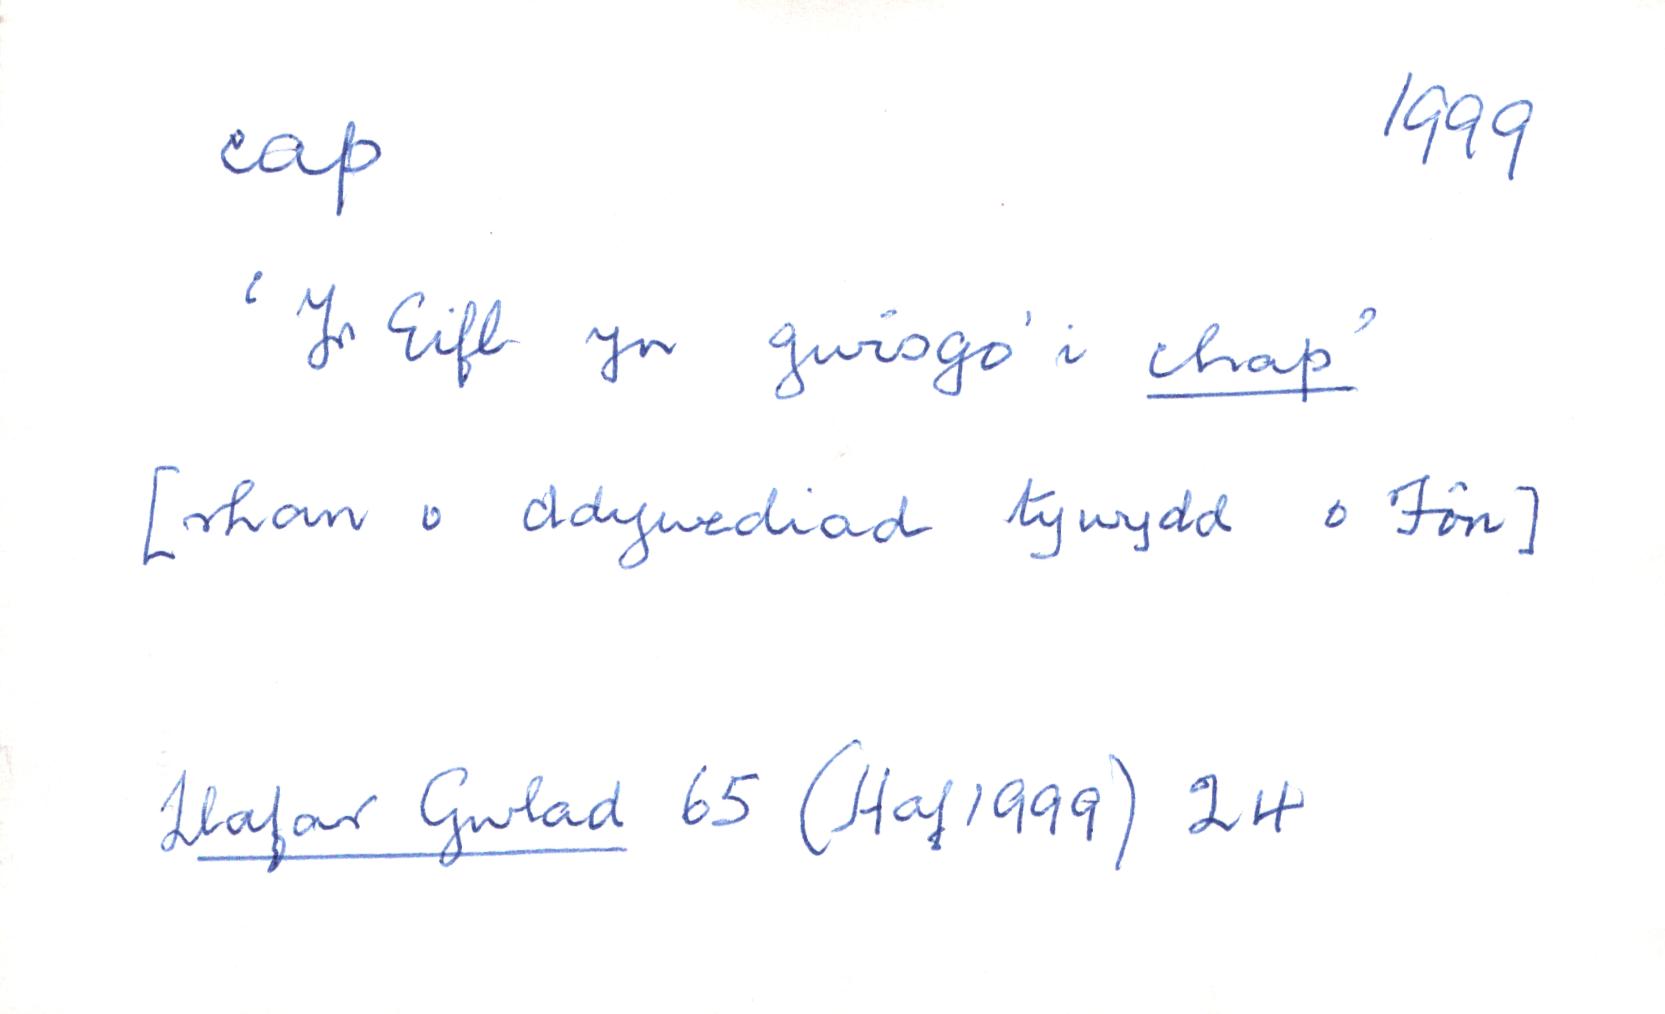 cap 1999
'Yr Eifl yn gwisgo'i chap'
[rhan o ddywediad tywydd o Fôn]
Llafar Gwlad 65 (Haf 1999) 24